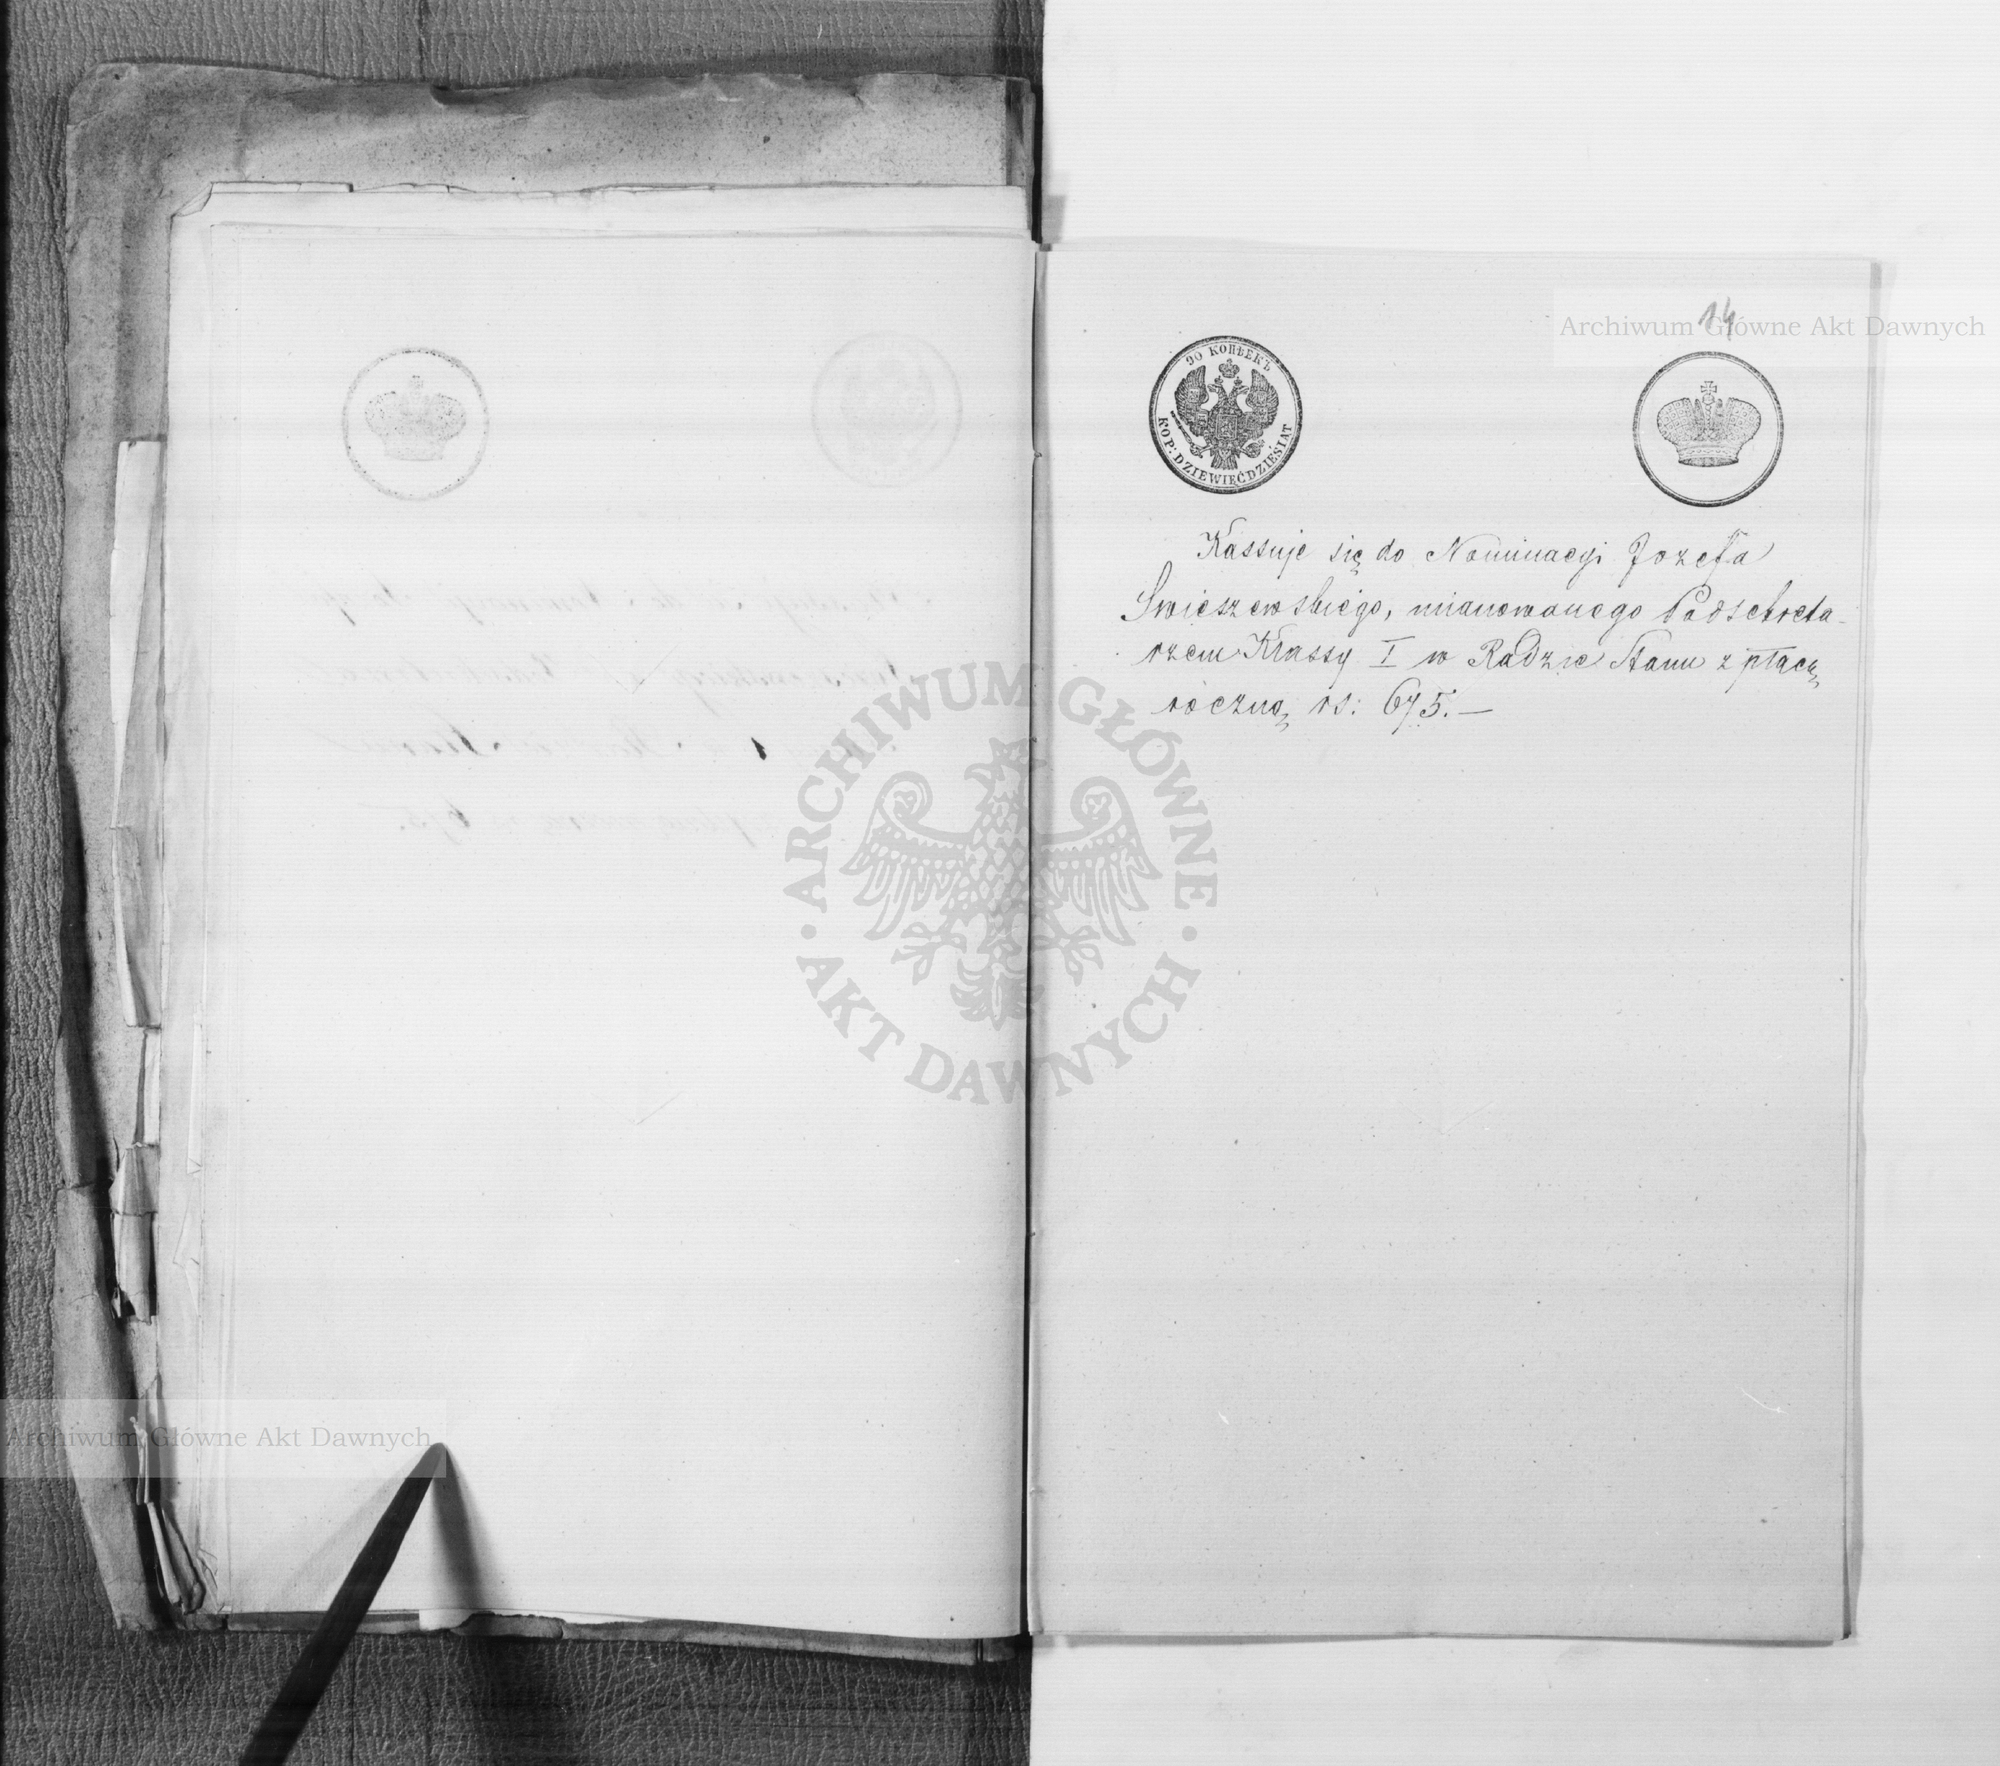 14
Archiwum Główne Akt Dawnych
90 КОПѢЕКЪ
KOP: DZIEWIĘĆDZIESIĄT
Kassuje się do Nominacyi Jozefa
Swieszewskiego, mianowanego Podsekreta-
rzem Klassy I w Radzie Stanu z płacą
roczną rs: 675.—
ARCHIWUM GŁÓWNE
AKT DAWNYCH
Archiwum Główne Akt Dawnych